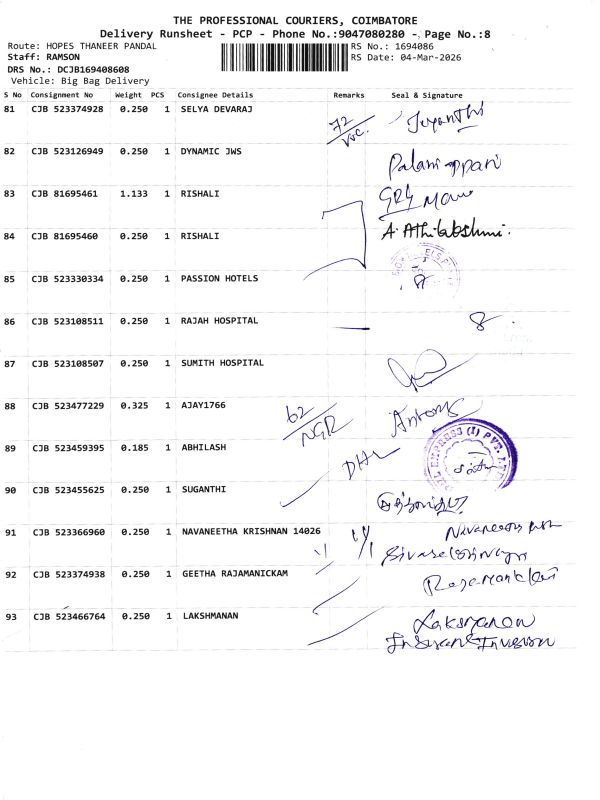 THE PROFESSIONAL COURIERS, COIMBATORE
Delivery Runsheet - PCP - Phone No.:9047080280 - Page No.:8
Route: HOPES THANEER PANDAL RS No.: 1694086
Staff: RAMSON RS Date: 04-Mar-2026
DRS No.: DCJB169408608
Vehicle: Big Bag Delivery
S No Consignment No Weight PCS Consignee Details Remarks Seal & Signature
81 CJB 523374928 0.250 1 SELYA DEVARAJ 72
82 CJB 523126949 0.250 1 DYNAMIC JWS Palaniappan
83 CJB 81695461 1.133 1 RISHALI
84 CJB 81695460 0.250 1 RISHALI A. Athilakshmi.
85 CJB 523330334 0.250 1 PASSION HOTELS
86 CJB 523108511 0.250 1 RAJAH HOSPITAL
87 CJB 523108507 0.250 1 SUMITH HOSPITAL
88 CJB 523477229 0.325 1 AJAY1766 62 NGR Antony
89 CJB 523459395 0.185 1 ABHILASH DHL EXPRESS (I) PVT. LTD
90 CJB 523455625 0.250 1 SUGANTHI
91 CJB 523366960 0.250 1 NAVANEETHA KRISHNAN 14026
92 CJB 523374938 0.250 1 GEETHA RAJAMANICKAM
93 CJB 523466764 0.250 1 LAKSHMANAN